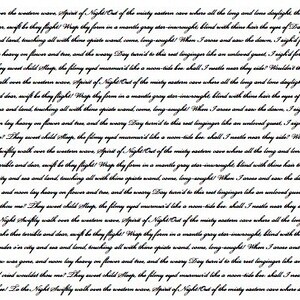 the western wave, Spirit of Night!Out of the misty eastern cave where all the long and lone daylight,
swift be thy flight! Wrap thy form in a mantle gray star-inwrought; blind with thine hair the eyes of
and land, touching all with thine opiate wand, come, long-sought! When I arose and saw the dawn, I
heavy on flower and tree, and the weary Day turn'd to his rest lingering like an unloved guest, I sigh'd
Thy sweet child Sleep, the filmy-eyed murmur'd like a noon-tide bee, shall I nestle near thy side?
walk over the western wave, Spirit of Night!Out of the misty eastern cave where all the long and lone
and dear, swift be thy flight! Wrap thy form in a mantle gray star-inwrought; blind with thine hair
and sea and land, touching all with thine opiate wand, come, long-sought! When I arose and saw
noon lay heavy on flower and tree, and the weary Day turn'd to his rest lingering like an unloved
Thy sweet child Sleep, the filmy-eyed murmur'd like a noon-tide bee, shall I nestle near thy
Swiftly walk over the western wave, Spirit of Night!Out of the misty eastern cave where all the long
and dear, swift be thy flight! Wrap thy form in a mantle gray star-inwrought; blind with thine
and sea and land, touching all with thine opiate wand, come, long-sought! When I arose
and noon lay heavy on flower and tree, and the weary Day turn'd to his rest lingering like
me? Thy sweet child Sleep, the filmy-eyed murmur'd like a noon-tide bee, shall I nestle
the Night Swiftly walk over the western wave, Spirit of Night!Out of the misty eastern cave where all the
terrible and dear, swift be thy flight! Wrap thy form in a mantle gray star-inwrought; blind with
city and sea and land, touching all with thine opiate wand, come, long-sought! When I
was gone, and noon lay heavy on flower and tree, and the weary Day turn'd to his rest lingering
cried wouldst thou me? Thy sweet child Sleep, the filmy-eyed murmur'd like a noon-tide bee, shall
To the Night Swiftly walk over the western wave, Spirit of Night!Out of the misty eastern cave